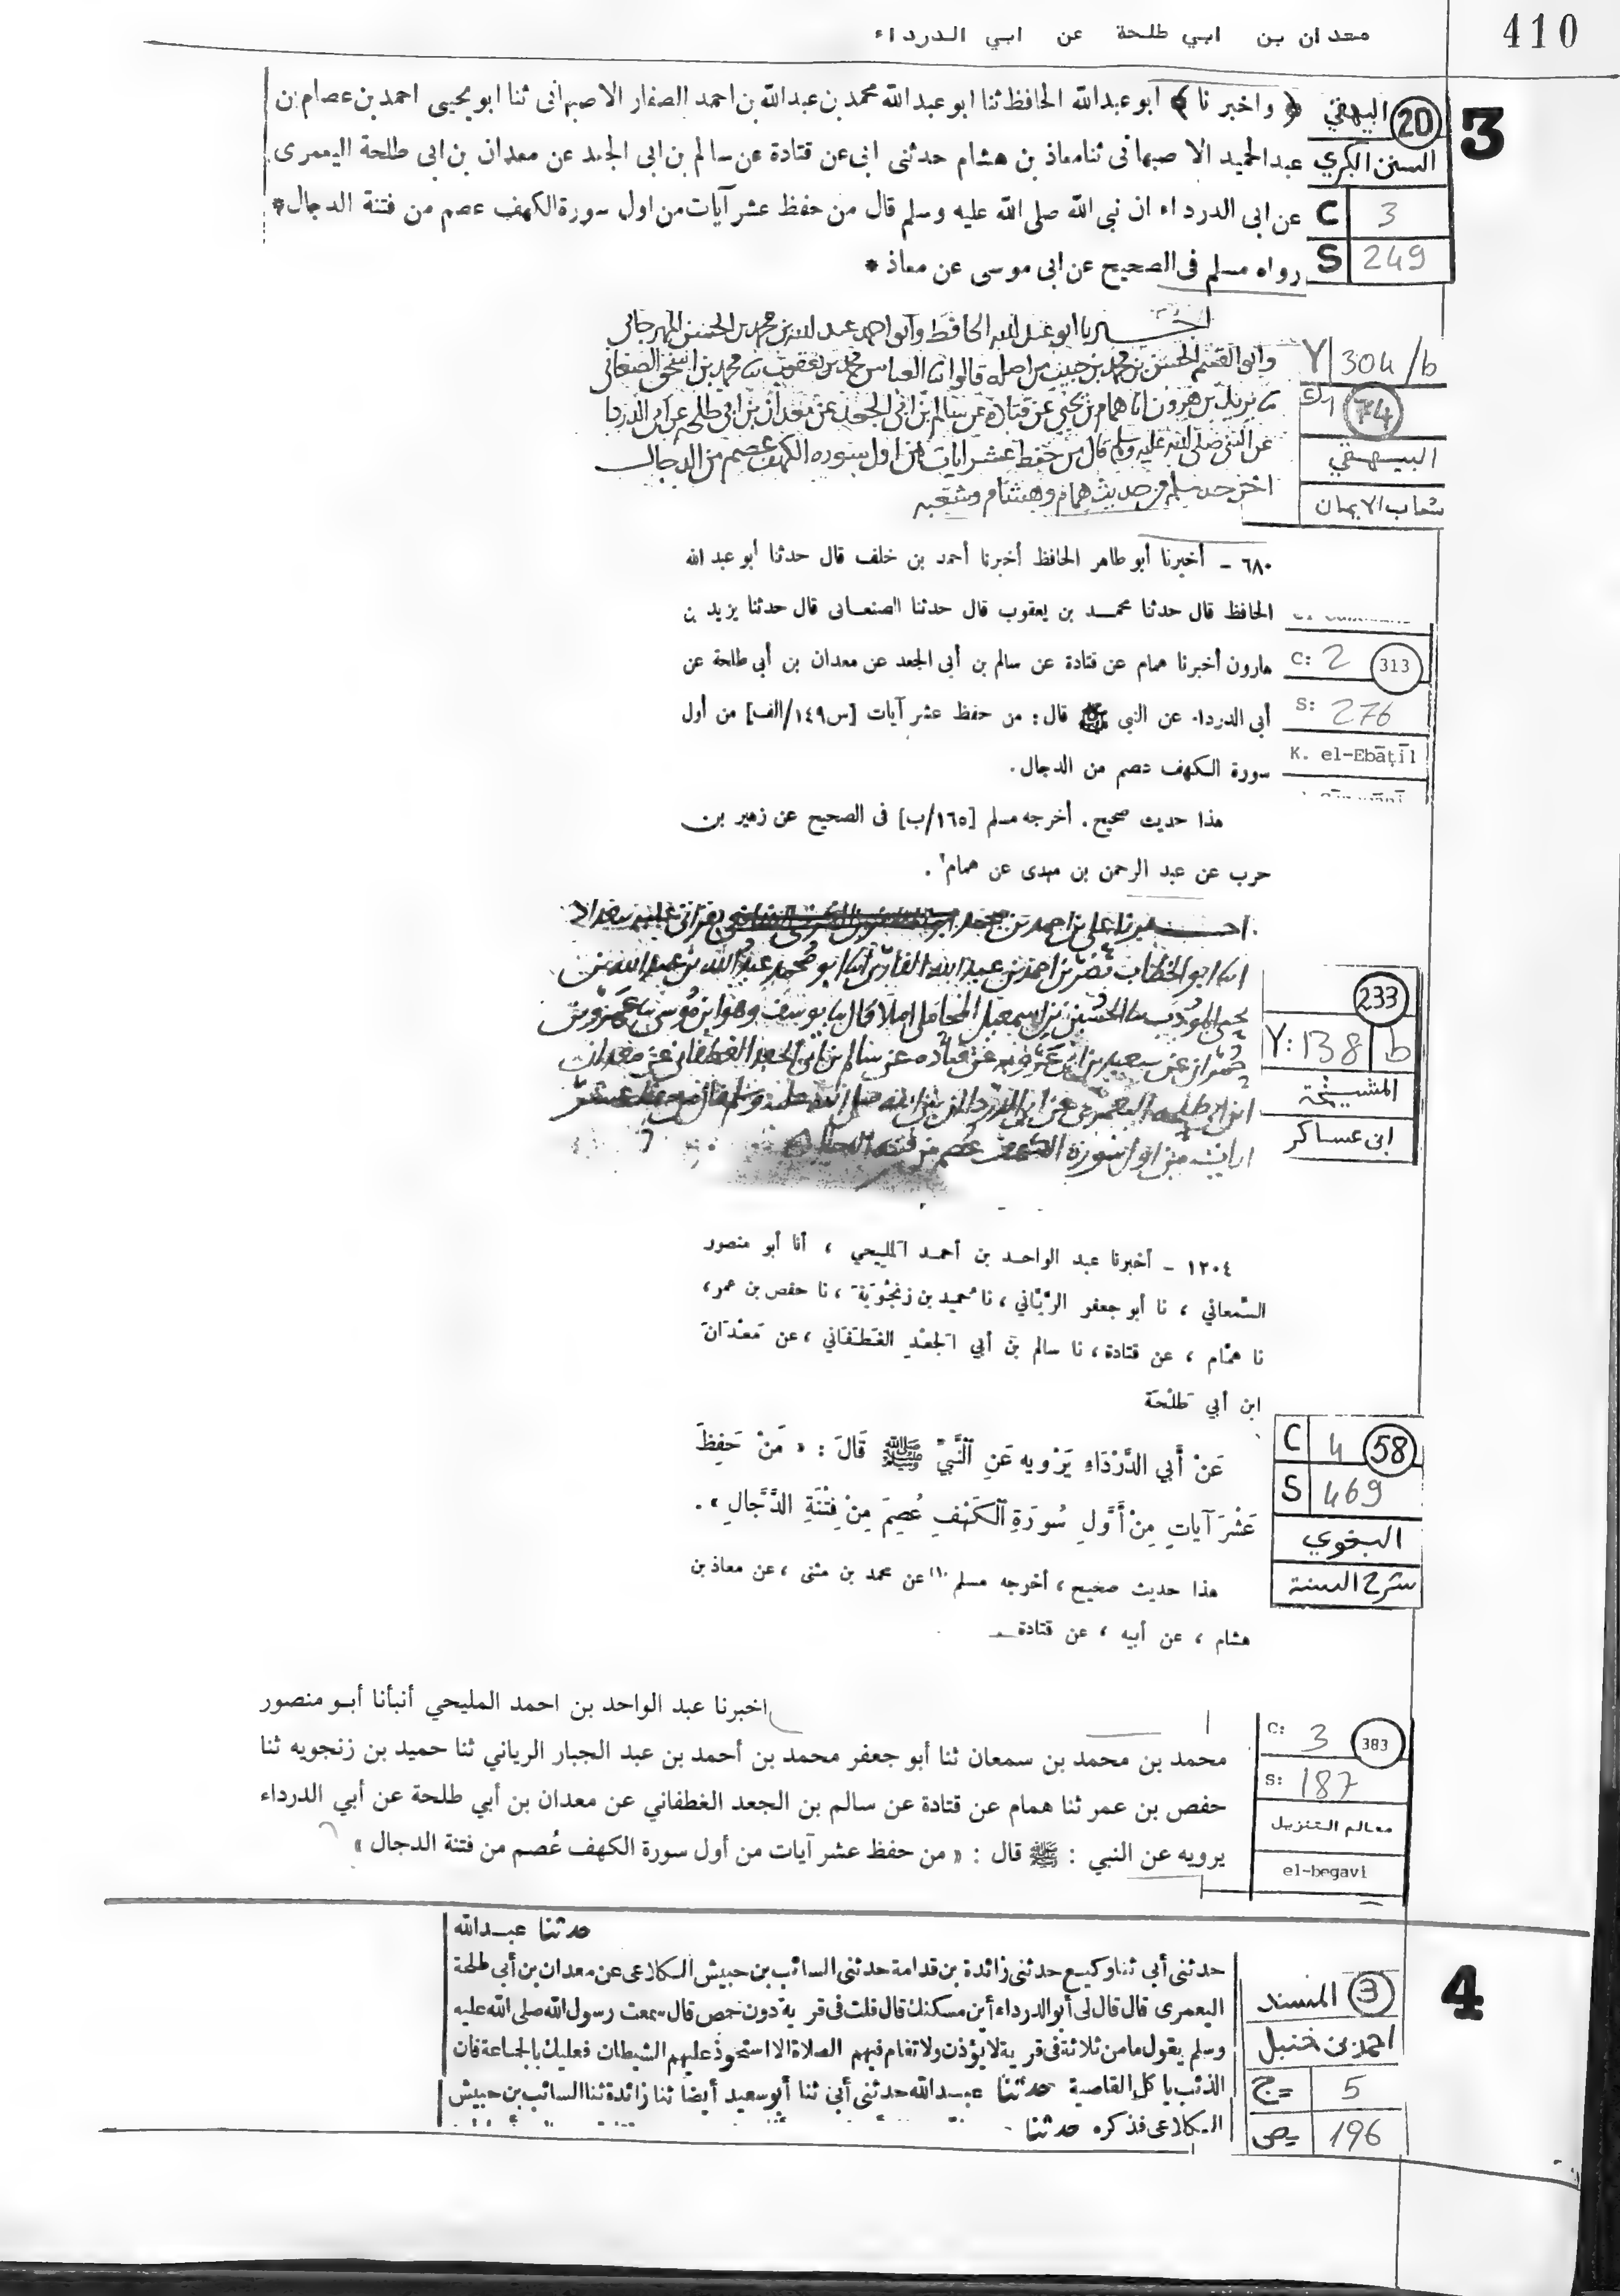 410
معدان بن ابي طلحة عن ابي الدرداء
3
20 البيهقي
السنن الكبري
C 3
S 249
﴿ واخبرنا ﴾ ابو عبدالله الحافظ ثنا ابو عبدالله محمد بن عبدالله بن احمد الصفار الاصبهانى ثنا ابو يحيى احمد بن عصام بن
عبدالحميد الاصبهانى ثنا معاذ بن هشام حدثنى ابى عن قتادة عن سالم بن ابى الجعد عن معدان بن ابى طلحة اليعمرى
عن ابى الدرداء ان نبى الله صلى الله عليه وسلم قال من حفظ عشر آيات من اول سورة الكهف عصم من فتنة الدجال *
رواه مسلم فى الصحيح عن ابى موسى عن معاذ *
Y 304/b
74
البيهقي
شعاب الايمان
اخبرنا ابو عبد الله الحافظ وابو احمد عبد الله بن محمد بن الحسن المهرجانى
وابو القسم الحسن بن محمد بن حبيب من اصله قالوا ابو العباس محمد بن يعقوب محمد بن اسحق الصغانى
يزيد بن هرون انا همام بن يحيى عن قتادة عن سالم بن ابى الجعد عن معدان بن ابى طلحه عن ابى الدردا
عن النبى صلى الله عليه وسلم قال من حفظ عشر ايات من اول سوره الكهف عصم من الدجال
اخرجه مسلم من حديث همام وهشام وشعبه
٦٨٠ - أخبرنا أبو طاهر الحافظ أخبرنا أحمد بن خلف قال حدثنا أبو عبد الله
الحافظ قال حدثنا محمد بن يعقوب قال حدثنا الصنعانى قال حدثنا يزيد بن
هارون أخبرنا همام عن قتادة عن سالم بن أبى الجعد عن معدان بن أبى طلحة عن
أبى الدرداء عن النبى ﷺ قال: من حفظ عشر آيات [س١٤٩/الف] من أول
سورة الكهف عصم من الدجال.
هذا حديث صحيح. أخرجه مسلم [١٦٥/ب] فى الصحيح عن زهير بن
حرب عن عبد الرحمن بن مهدى عن همام.
C: 2 313
S: 276
K. el-Ebāṭīl
233
Y: 138 b
المشيخة
ابن عساكر
اخبرنا على بن احمد بن بقراتى عليه ببغداد
ابو الخطاب نصر بن احمد بن عبد الله القارى ابو محمد عبد الله بن عبيد الله بن
يحيى المؤدب الحسين بن اسمعيل المحاملى املا قال يوسف وهو ابن موسى
عن سعيد بن ابى عروبه عن قتاده عن سالم بن ابى الجعد الغطفانى عن معدان
ابن ابى طلحه اليعمرى عن ابى الدردا
ايات من اول سورة الكهف عصم من فتنه الدجال
١٢٠٤ - أخبرنا عبد الواحد بن أحمد المليحي ، أنا أبو منصور
السّمعاني ، نا أبو جعفر الرّيّاني ، نا حُميد بن زنجُوية ، نا حفص بن عمر ،
نا همّام ، عن قتادة ، نا سالم بن أبي الجعْدِ الغَطَفَاني ، عن مَعْدَانَ
ابن أبي طَلْحَة
عَنْ أَبي الدَّرْدَاءِ يَرْويه عَنِ النَّبيِّ ﷺ قَالَ : « مَنْ حَفِظَ
عَشْرَ آيَاتٍ مِنْ أَوَّلِ سُورَةِ الْكَهْفِ عُصِمَ مِنْ فِتْنَةِ الدَّجَّالِ » .
هذا حديث صحيح ، أخرجه مسلم (١) عن محمد بن مثنى ، عن معاذ بن
هشام ، عن أبيه ، عن قتادة
C 4 58
S 469
البغوي
شرح السنة
اخبرنا عبد الواحد بن احمد المليحي أنبأنا أبو منصور
محمد بن محمد بن سمعان ثنا أبو جعفر محمد بن أحمد بن عبد الجبار الرياني ثنا حميد بن زنجويه ثنا
حفص بن عمر ثنا همام عن قتادة عن سالم بن الجعد الغطفاني عن معدان بن أبي طلحة عن أبي الدرداء
يرويه عن النبي : ﷺ قال : « من حفظ عشر آيات من أول سورة الكهف عُصم من فتنة الدجال »
C: 3 383
S: 187
معالم التنزيل
el-begavi
4
3 المسند
احمد بن حنبل
ج= 5
ص= 196
حدثنا عبدالله
حدثنى أبى ثنا وكيع حدثنى زائدة بن قدامة حدثنى السائب بن حبيش الكلاعى عن معدان بن أبى طلحة
اليعمرى قال قال لى أبو الدرداء أين مسكنك قال قلت فى قرية دون حمص قال سمعت رسول الله صلى الله عليه
وسلم يقول ما من ثلاثة فى قرية لا يؤذن ولا تقام فيهم الصلاة الا استحوذ عليهم الشيطان فعليك بالجماعة فان
الذئب يأكل القاصية حدثنا عبدالله حدثنى أبى ثنا أبو سعيد أيضا ثنا زائدة ثنا السائب بن حبيش
الكلاعى فذكره حدثنا